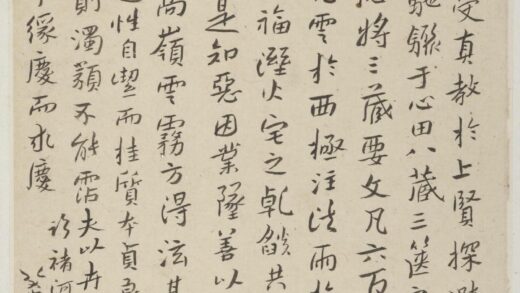 受真教於上賢探
馳驟于心田八藏三篋
將三藏要文凡六百
雲於西極注法雨於
福溼火宅之乾燄共
是知惡因業墜善以
高嶺雲霧方得泫其
性自潔而桂質本貞良
則濁類不能霑夫以卉
緣慶而求慶
臨褚河